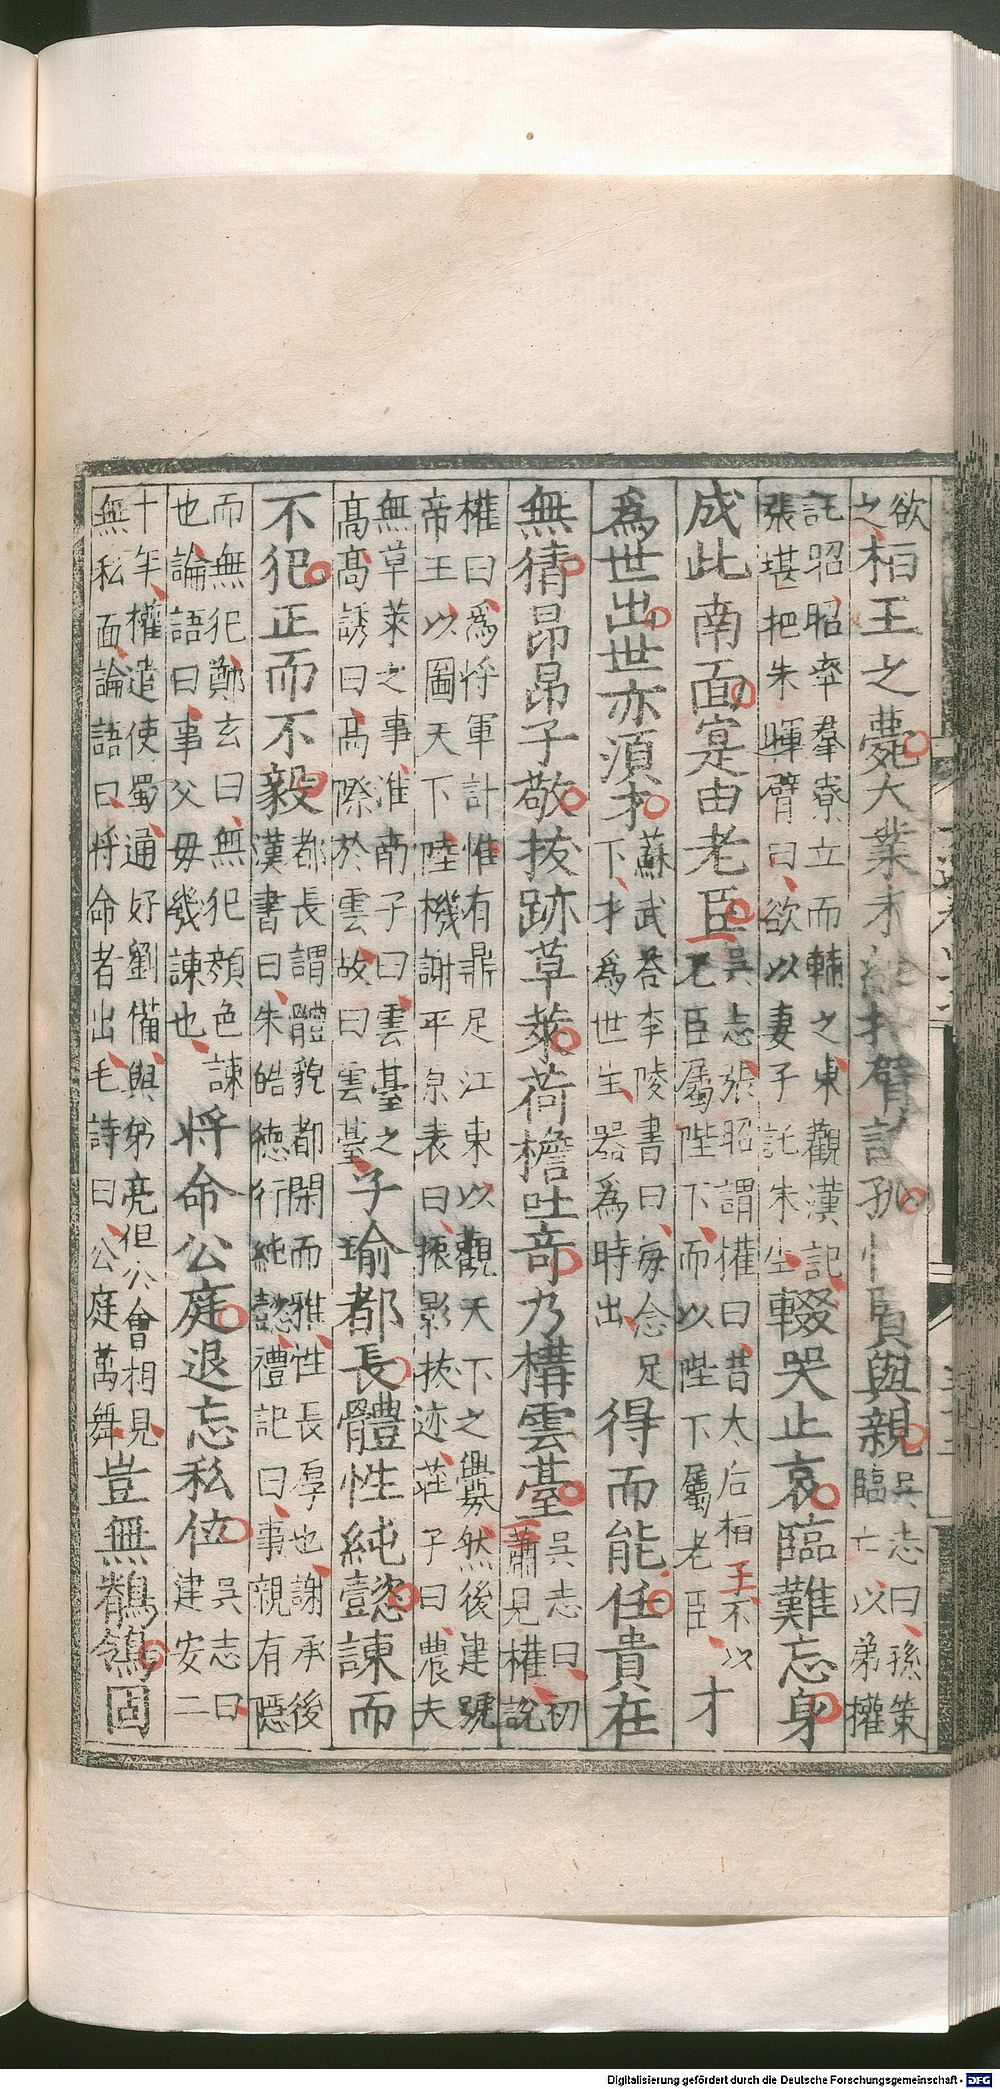 欲之桓王之薨大業未純把臂託孤惟賢與親吳志曰孫策臨亡以弟權
託昭昭率羣寮立而輔之東觀漢記張堪把朱暉臂曰欲以妻子託朱生輟哭止哀臨難忘身
成此南面寔由老臣吳志張昭謂權曰昔太后桓王不以老臣屬陛下而以陛下屬老臣才
爲世出世亦須才蘇武荅李陵書曰每念足下才爲世生器爲時出得而能任貴在
無猜昂昂子敬拔跡草萊荷檐吐奇乃構雲臺吳志曰初肅見權說
權曰爲將軍計惟有鼎足江東以觀天下之釁然後建號帝王以圖天下陸機謝平原表曰振影拔迹莊子曰農夫
無草萊之事淮南子曰雲臺之高高誘曰高際於雲故曰雲臺子瑜都長體性純懿諫而
不犯正而不毅都長謂體貌都閑而雅性長厚也謝承後漢書曰朱皓德行純懿禮記曰事親有隱
而無犯鄭玄曰無犯顏色諫也論語曰事父母幾諫也將命公庭退忘私位吳志曰建安二
十年權遣使蜀通好劉備與弟亮但公會相見無私面論語曰將命者出毛詩曰公庭萬舞豈無鶺鴒固
Digitalisierung gefördert durch die Deutsche Forschungsgemeinschaft - DFG